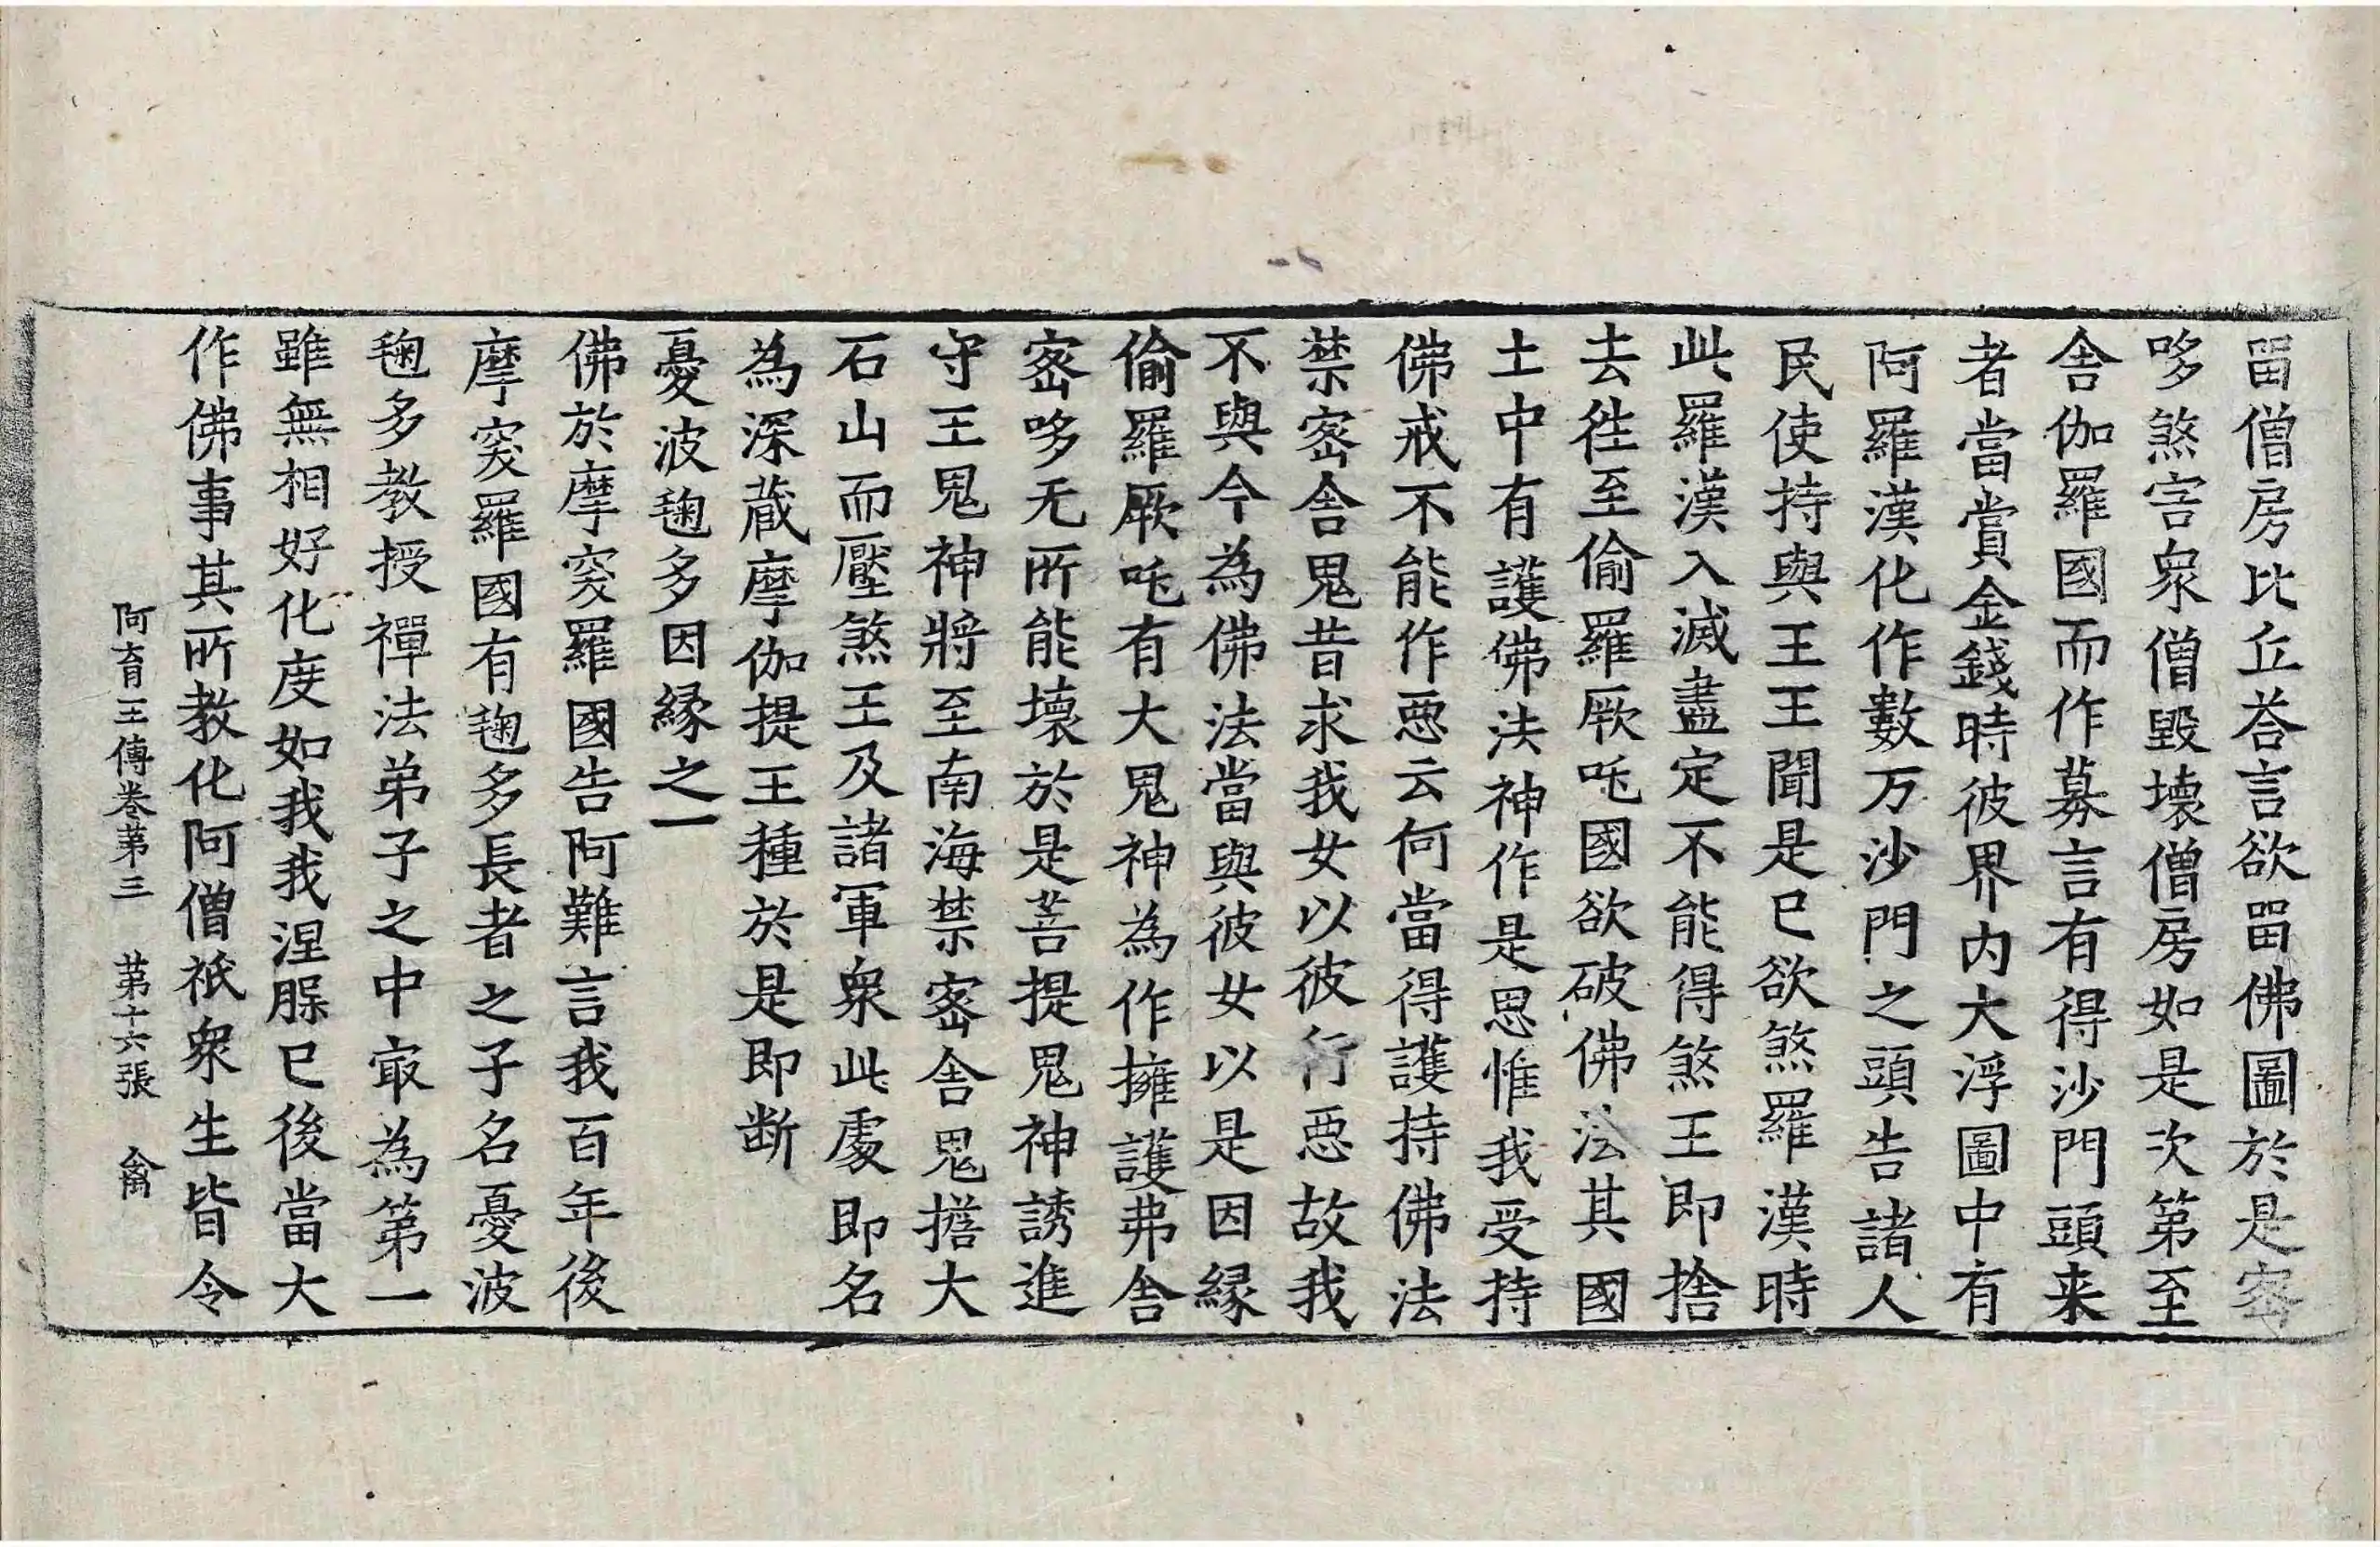 畱僧房比丘荅言欲畱佛圖於是宻
哆煞害衆僧毀壞僧房如是次第至
舎伽羅國而作募言有得沙門頭来
者當賞金錢時彼界内大浮圖中有
阿羅漢化作數万沙門之頭告諸人
民使持與王王聞是已欲煞羅漢時
此羅漢入滅盡定不能得煞王即捨
去徃至偷羅厥吒國欲破佛法其國
土中有護佛法神作是思惟我受持
佛戒不能作惡云何當得護持佛法
禁宻舎鬼昔求我女以彼行惡故我
不與今為佛法當與彼女以是因緣
偷羅厥吒有大鬼神為作擁護弗舎
宻哆无所能壞於是菩提鬼神誘進
守王鬼神將至南海禁宻舎鬼擔大
石山而壓煞王及諸軍衆此處即名
為深蔵摩伽提王種於是即断
憂波毱多因縁之一
佛於摩突羅國告阿難言我百年後
摩突羅國有毱多長者之子名憂波
毱多教授禪法弟子之中㝡為第一
雖無相好化度如我我涅脲已後當大
作佛事其所教化阿僧祇衆生皆令
阿育王傳卷第三　第十六張　禽